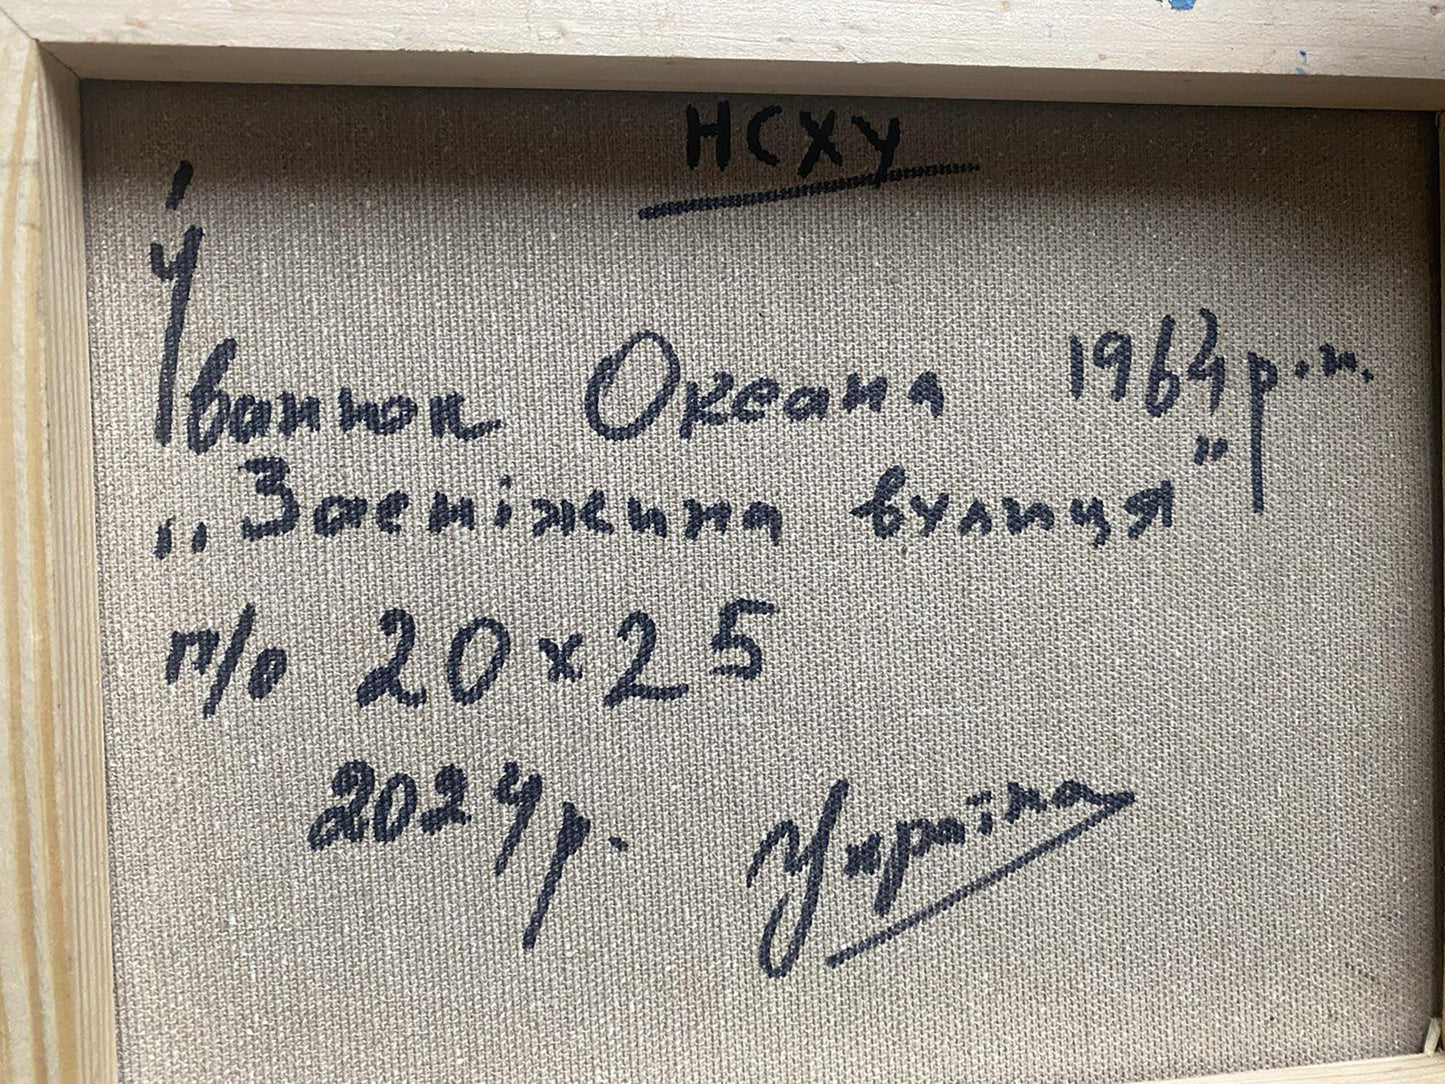 НСХУ
Іванюк Океана 1964 р.н.
„Засніжена вулиця”
п/о 20х25
2024р. Україна